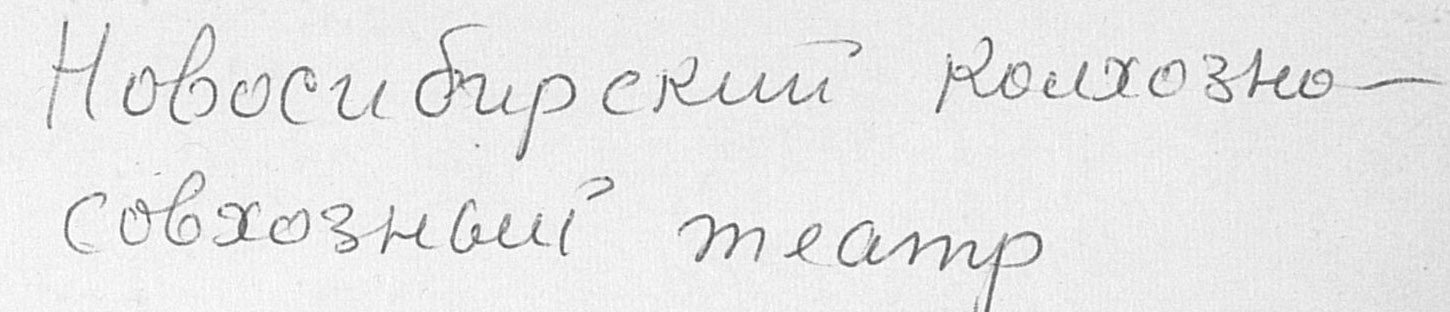 Новосибирский колхозно-
совхозный театр